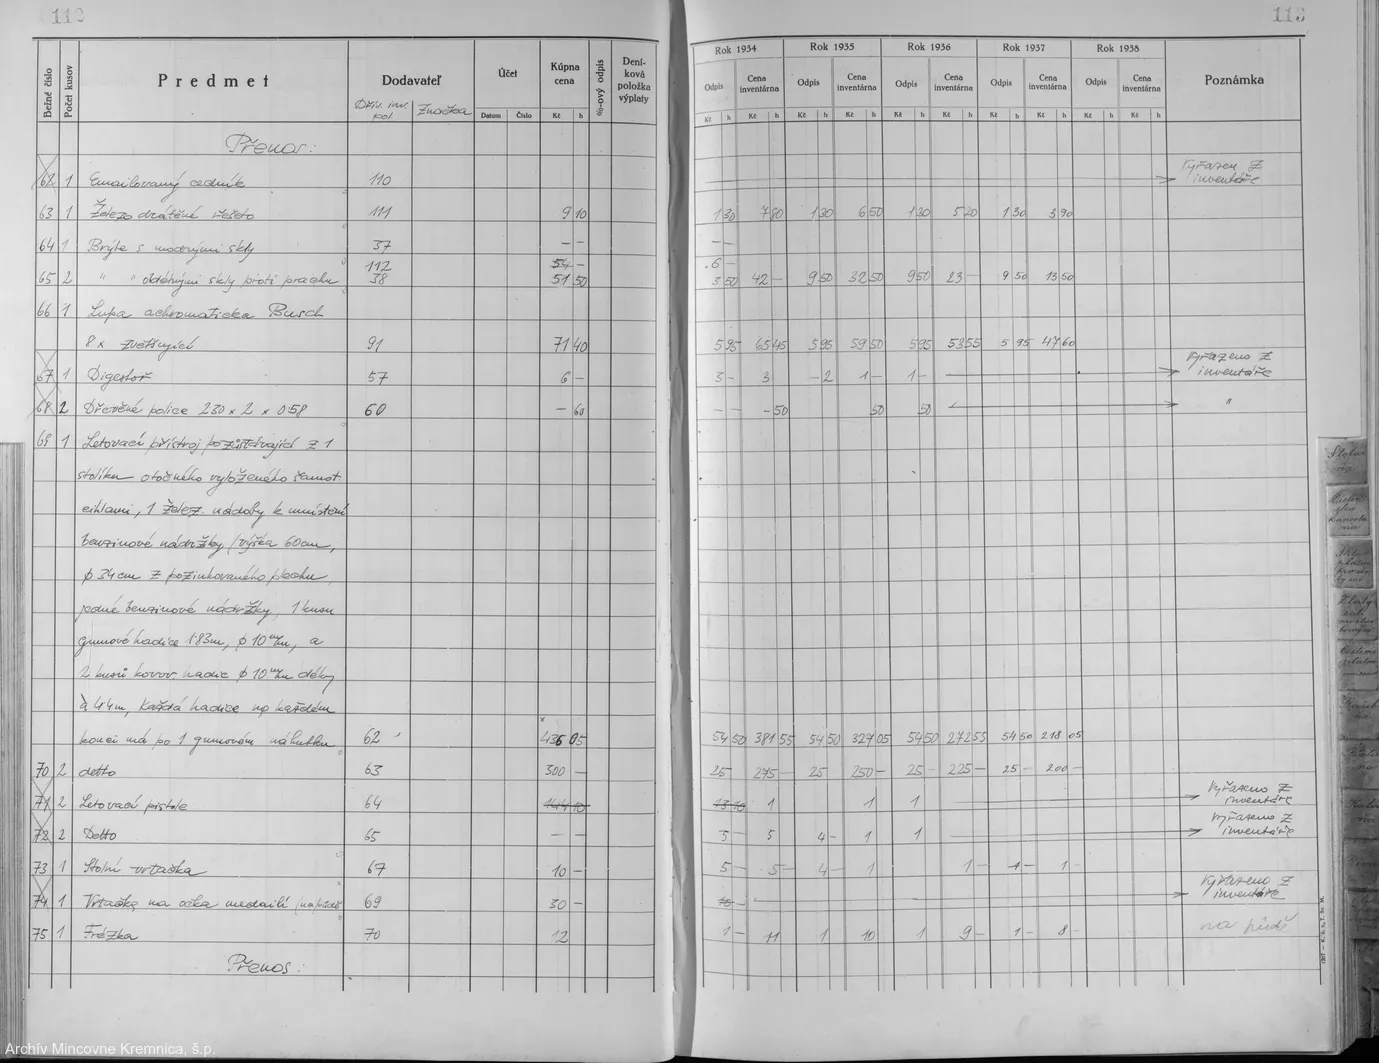 112
Bežné číslo | Počet kusov | Predmet | Dodavateľ | Účet | Kúpna cena | %-ový odpis | Deníková položka výplaty
Dřív. inv. pol. | Značka | Datum | Číslo | Kč | h
Přenos:
62 1 Emailovaný cedník 110
63 1 Železo drátěné řešeto 111 9 10
64 1 Brýle s modrými skly 37 – –
112 54 –
65 2 " " oblétnými skly proti prachu 38 51 50
66 1 Lupa achromatická Busch
8 x zvětšující 91 71 40
67 1 Digestoř 57 6 –
68 2 Dřevěné police 230 x 2 x 058 60 – 60
69 1 Letovací přístroj pozůstávající z 1
stolíku otočného vyloženého šamot.
cihlami, 1 želez. nádoby k umístění
benzinové nádržky (výška 60cm,
φ 34cm z pozinkovaného plechu,
jedné benzinové nádržky, 1 kusu
gumové hadice 1·83m, φ 10 m/m, a
2 kusů kovov. hadic φ 10 m/m délky
à 4·4m, každá hadice na každém
konci má po 1 gumovém náhubku 62 436 05
70 2 detto 63 300 –
71 2 Letovací pistole 64 144 10
72 2 Detto 65 – –
73 1 Stolní vrtačka 67 10 –
74 1 Vrtačka na očka medailí 69 30 –
75 1 Frézka 70 12
Přenos:
113
Rok 1934 | Rok 1935 | Rok 1936 | Rok 1937 | Rok 1938 | Poznámka
Odpis | Cena inventárna | Odpis | Cena inventárna | Odpis | Cena inventárna | Odpis | Cena inventárna | Odpis | Cena inventárna
Kč h Kč h Kč h Kč h Kč h Kč h Kč h Kč h Kč h Kč h
Vyřazen z
inventáře
1 30 7 80 1 30 6 50 1 30 5 20 1 30 3 90
– –
6 –
3 50 42 – 9 50 32 50 9 50 23 – 9 50 13 50
5 95 65 45 5 95 59 50 5 95 53 55 5 95 47 60
Vyřazeno z
3 – 3 – 2 1 – 1 – inventáře
– – – 50 50 50 "
54 50 381 55 54 50 327 05 54 50 272 55 54 50 218 05
25 275 – 25 250 – 25 – 225 – 25 – 200 –
Vyřazeno z
13 10 1 1 1 inventáře
Vyřazeno z
5 – 5 4 – 1 1 inventáře
5 – 5 – 4 – 1 1 – 1 – 1 –
Vyřazeno z
inventáře
1 – 11 1 10 1 9 – 1 – 8 – na půdě
Archív Mincovne Kremnica, š.p.